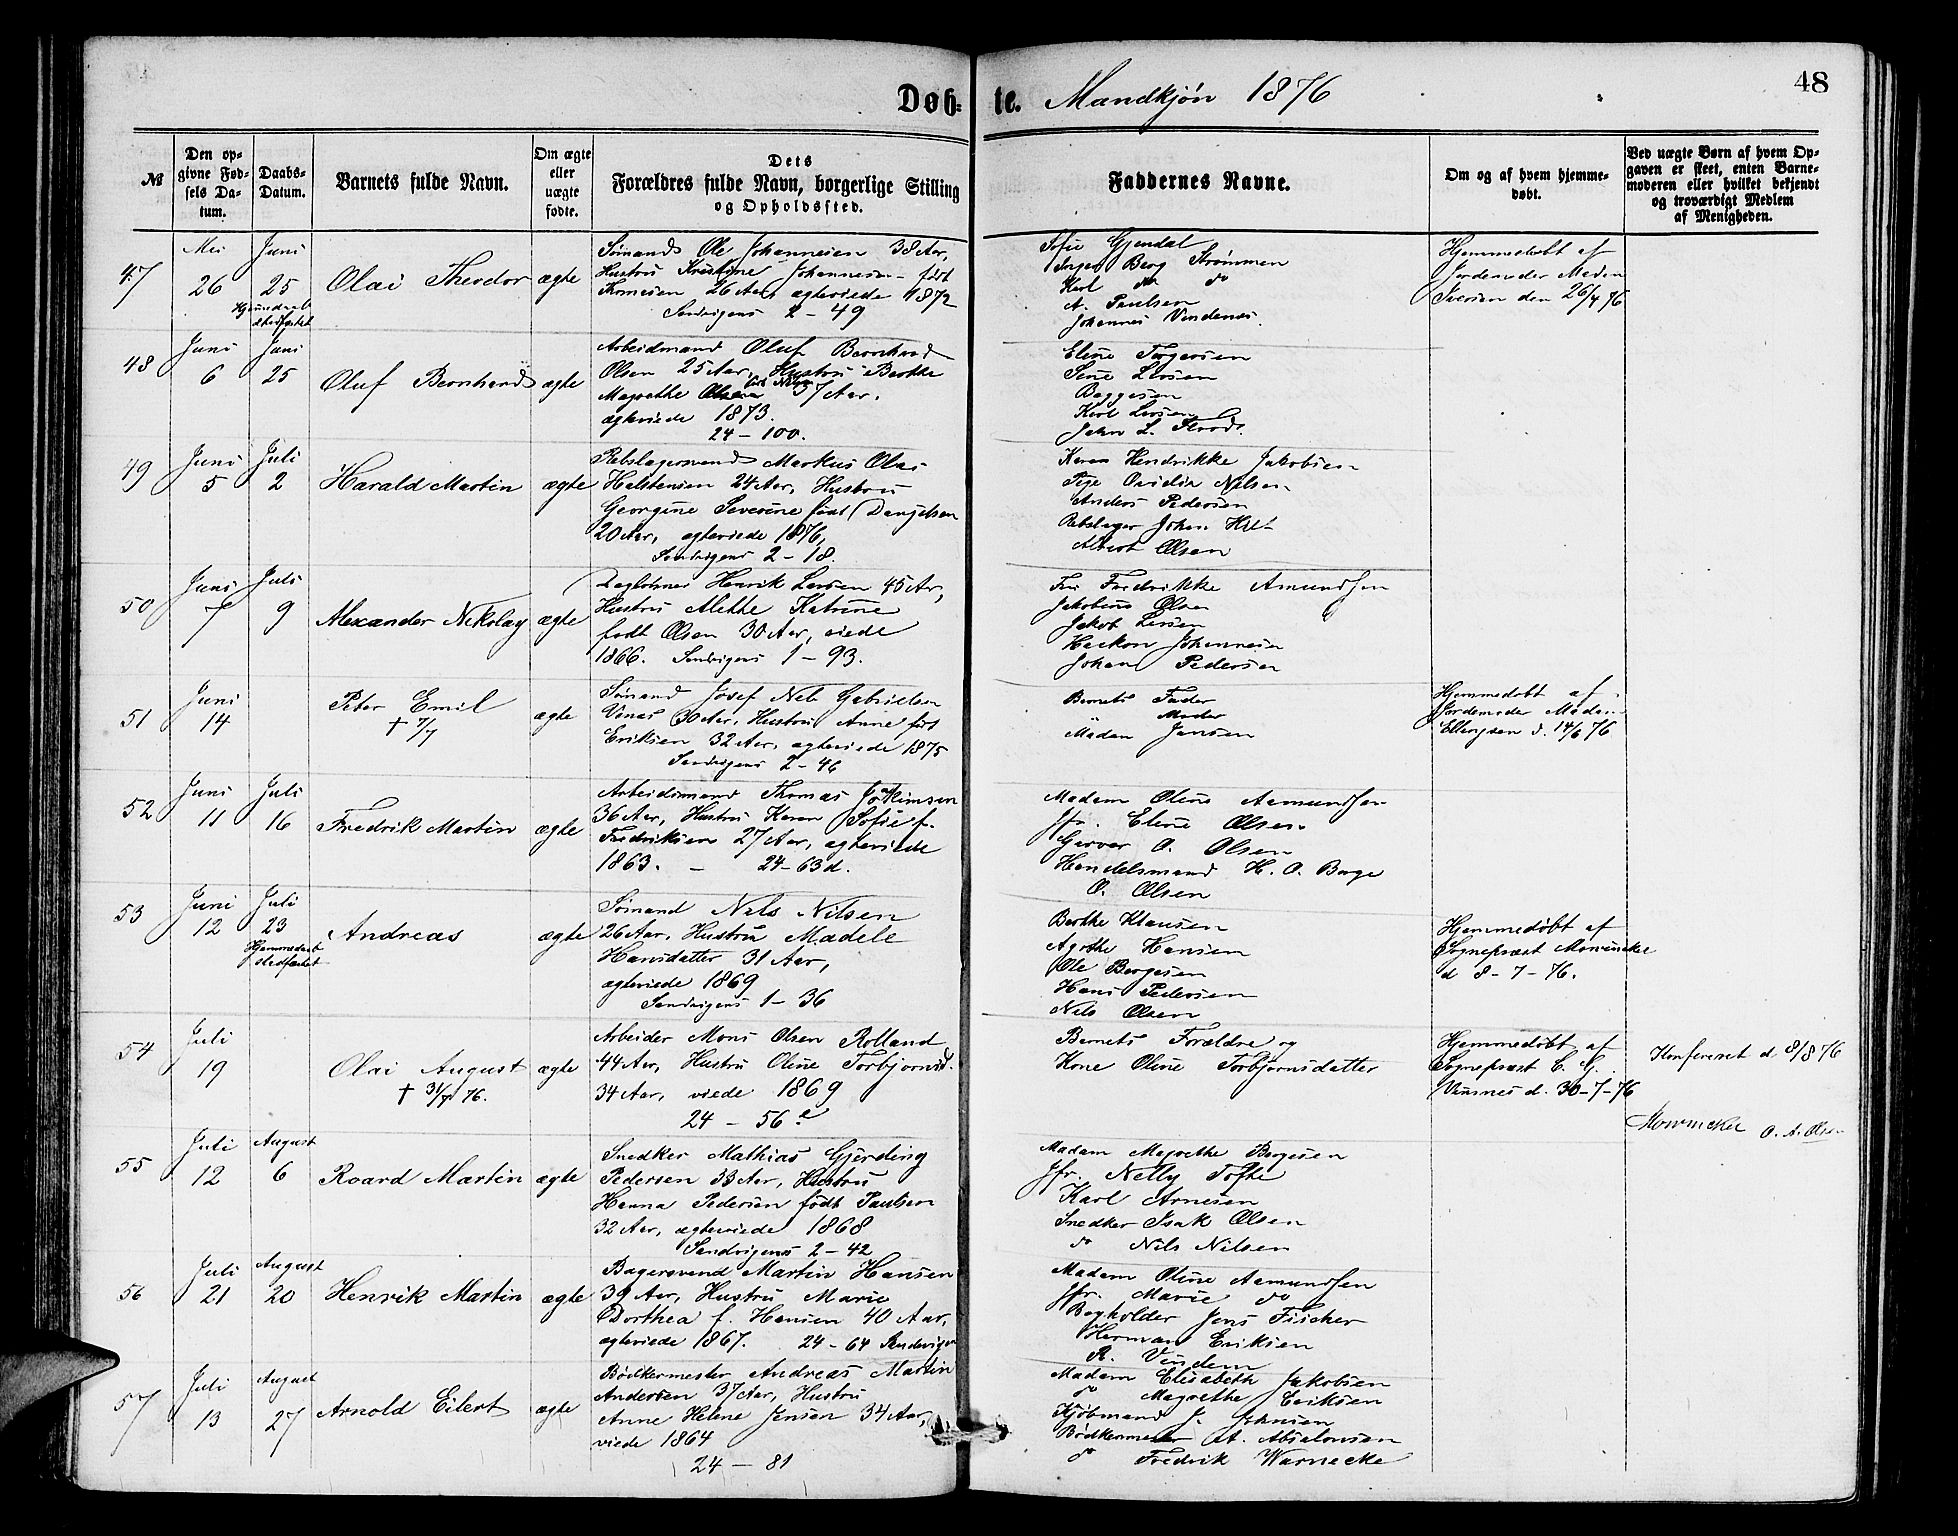 Døb- te. Mandkjøn 1876
48
№
Den op-
givne Fød-
sels Da-
tum.
Daabs-
Datum.
Barnets fulde Navn.
Om ægte
eller
uægte
fødte.
Dets
Forældres fulde Navn, borgerlige Stilling
og Opholdssted.
Faddernes Navne.
Om og af hvem hjemme-
døbt.
Ved uægte Børn af hvem Op-
gaven er skeet, enten Barne-
moderen eller hvilket bekjendt
og troværdigt Medlem
af Menigheden.
47
Mai
26
Juni
25
Olai Theodor
ægte
Sømand Ole Johannesen 38 Aar,
Hustru Kristine Johannesen født
26 Aar, ægteviede 1872
Sandvigens 2 - 49
Sofie Gjendal
Inger Berg Strømmen
Karl do do
A. Paulsen
Johannes Vindenes.
Hjemmedøbt af
Jordemoder Madam
Iversen den 26/4 76
48
Juni
6
Juni
25
Oluf Bernhard
ægte
Arbeidsmand Oluf Bernhard
Olsen 25 Aar, Hustru Berthe
Magrethe 37 Aar.
ægteviede 1873.
24 - 100.
Eline Torgersen
Sine Larsen
Baggesen
Karl Larsen
John L.
49
Juni
5
Juli
2
Harald Martin
ægte
Rebslagersvend Markus Olai
Halstensen 24 Aar, Hustru
Georgine Severine født Danielsen
20 Aar, ægteviede 1876,
Sandvigens 2 - 18.
Karen Hendrikke Jakobsen
Pige Ovidia Nilsen
Anders Pedersen
Rebslager Johan
Albert Olsen
50
Juni
7
Juli
9
Alexander Nikolay
ægte
Dagleiner Henrik Larsen 45 Aar,
Hustru Mette Katrine
født Olsen 30 Aar, viede
1866. Sandvigens 1 - 93.
Fru Fredrikke Amundsen
Jakobine Olsen
Jakob Larsen
Haakon Johannesen
Johan Pedersen
51
Juni
14
Peter Emil
† 7/7
ægte
Sømand Josef Nils Gabrielsen
Vines 30 Aar, Hustru Anne født
Eriksen 32 Aar, ægteviede 1875
Sandvigens 2 - 46
Barnets Fader
" Moder
Madam Jensen
Hjemmedøbt af
Jordemoder Madam
Ellengsen d. 14/6 76
52
Juni
11
Juli
16
Fredrik Martin
ægte
Arbeidsmand Thomas Joakimsen
36 Aar, Hustru Karen Sofie f.
Fredriksen 27 Aar, ægteviede
1863. - 24 - 63 d.
Madam Oline Aamundsen
Jfr. Eline Olsen
Garver O. Olsen
Handelsmand H. O. Borge
O. Olsen
53
Juni
12
Juli
23
Hjemmedaab
stadfæstet
Andreas
ægte
Sømand Nils Nilsen
26 Aar, Hustru Madele
Hansdatter 31 Aar,
ægteviede 1869
Sandvigens 1 - 36
Berthe Klausen
Agathe Hansen
Ole Borgesen
Hans Pedersen
Nils Olsen
Hjemmedøbt af
Sogneprest Mowinckel
d 8 - 7 - 76.
54
Juli
19
Olai August
† 31/7 76.
ægte
Arbeider Mons Olsen Rolland
44 Aar, Hustru Oline Torbjørnsd.
34 Aar, viede 1869
24 - 56 e
Barnets Forældre og
Kone Oline Torbjørnsdatter
Hjemmedøbt af
Sogneprest C. G.
Vinsnes d. 30 - 7 - 76
Konfereret d 8/8 76
Mowinckel O. A. Olsen
55
Juli
12
August
6
Roard Martin
ægte
Snedker Mathias Gjerding
Pedersen 33 Aar, Hustru
Hanna Pedersen født Paulsen
32 Aar, ægteviede 1868
Sandvigens 2 - 42
Madam Magrethe Borgesen
Jfr. Nelly Tofte
Karl Arnesen
Snedker Isak Olsen
do Nils Nilsen
56
Juli
21
August
20
Henrik Martin
ægte
Bagersvend Martin Hansen
39 Aar, Hustru Marie
Dorthea f. Hansen 40 Aar,
ægteviede 1867. 24 - 64 Sandvigen
Madam Oline Aamundsen
Jfr. Marie do
Bogholder Jens Fischer
Herman Eriksen
R. Vindem
57
Juli
13
August
27
Arnold Eilert
ægte
Bødkermester Andreas Martin
Andersen 37 Aar, Hustru
Anne Helene Jensen 34 Aar,
viede 1864
24 - 81
Madam Elisabeth Jakobsen
do Magrethe Eriksen
Kjøbmand J. Johnsen
Bødkermester A. Absalonsen
do Fredrik Warnecke